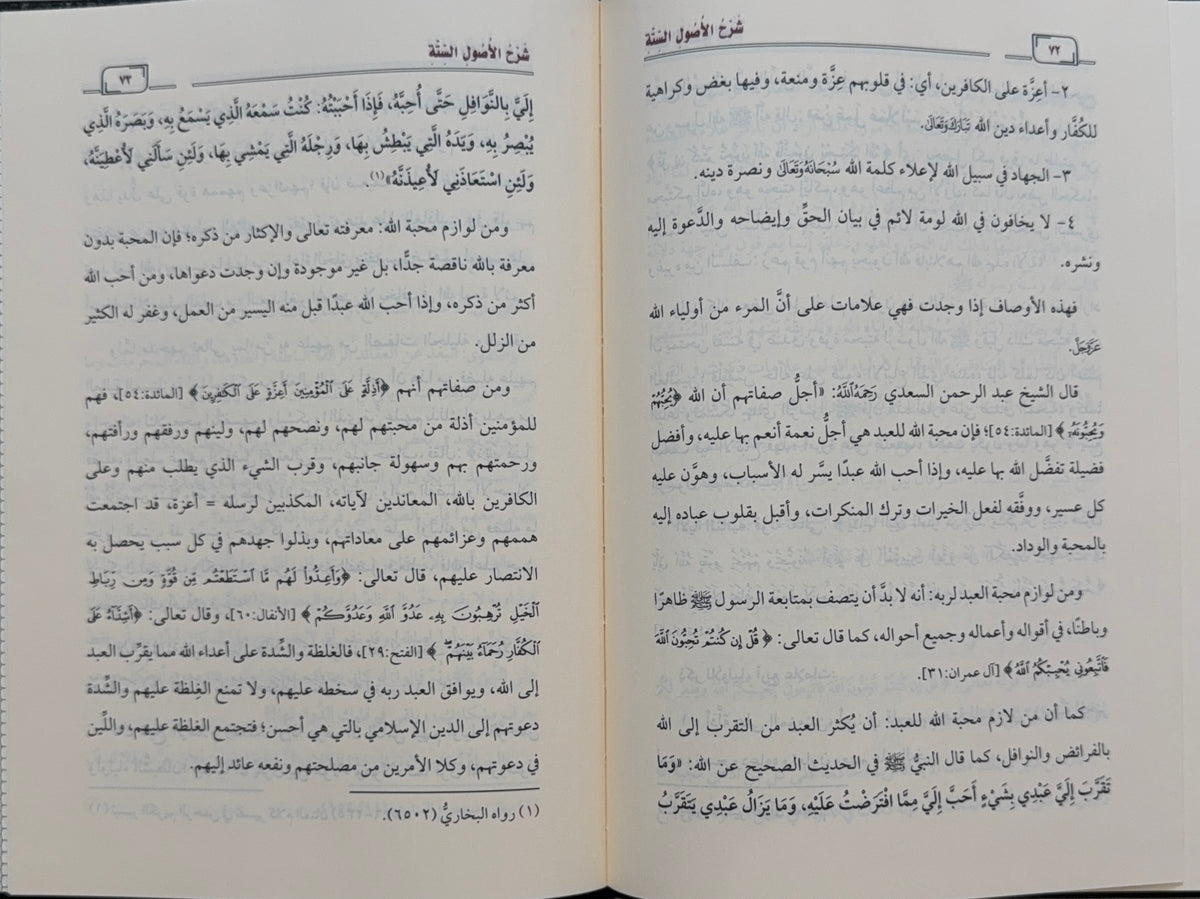 شَرْحُ الأُصُولِ السِّتَّةِ
٧٢
٢- أعِزَّة على الكافرين، أي: في قلوبهم عِزَّة ومنعة، وفيها بغض وكراهية
للكُفَّار وأعداء دين الله تَبَارَكَ وَتَعَالَى.
٣- الجهاد في سبيل الله لإعلاء كلمة الله سُبْحَانَهُ وَتَعَالَى ونصرة دينه.
٤- لا يخافون في الله لومة لائم في بيان الحقِّ وإيضاحه والدَّعوة إليه
ونشره.
فهذه الأوصاف إذا وجدت فهي علامات على أنَّ المرء من أولياء الله
عَزَّوَجَلَّ.
قال الشيخ عبد الرحمن السعدي رَحِمَهُ اللَّهُ: «أجلُّ صفاتهم أن الله ﴿يُحِبُّهُمْ
وَيُحِبُّونَهُۥٓ﴾ [المائدة:٥٤]؛ فإن محبة الله للعبد هي أجلُّ نعمة أنعم بها عليه، وأفضل
فضيلة تفضَّل الله بها عليه، وإذا أحب الله عبدًا يسَّر له الأسباب، وهوَّن عليه
كل عسير، ووفَّقه لفعل الخيرات وترك المنكرات، وأقبل بقلوب عباده إليه
بالمحبة والوداد.
ومن لوازم محبة العبد لربه: أنه لا بدَّ أن يتصف بمتابعة الرسول ﷺ ظاهرًا
وباطنًا، في أقواله وأعماله وجميع أحواله، كما قال تعالى: ﴿قُلْ إِن كُنتُمْ تُحِبُّونَ ٱللَّهَ
فَٱتَّبِعُونِي يُحْبِبْكُمُ ٱللَّهُ﴾ [آل عمران:٣١].
كما أن من لازم محبة الله للعبد: أن يُكثر العبد من التقرب إلى الله
بالفرائض والنوافل، كما قال النبيُّ ﷺ في الحديث الصحيح عن الله: «وَمَا
تَقَرَّبَ إِلَيَّ عَبْدِي بِشَيْءٍ أَحَبَّ إِلَيَّ مِمَّا افْتَرَضْتُ عَلَيْهِ، وَمَا يَزَالُ عَبْدِي يَتَقَرَّبُ
شَرْحُ الأُصُولِ السِّتَّةِ
٧٣
إِلَيَّ بِالنَّوَافِلِ حَتَّى أُحِبَّهُ، فَإِذَا أَحْبَبْتُهُ: كُنْتُ سَمْعَهُ الَّذِي يَسْمَعُ بِهِ، وَبَصَرَهُ الَّذِي
يُبْصِرُ بِهِ، وَيَدَهُ الَّتِي يَبْطِشُ بِهَا، وَرِجْلَهُ الَّتِي يَمْشِي بِهَا، وَلَئِن سَأَلَنِي لأُعْطِيَنَّهُ،
وَلَئِنِ اسْتَعَاذَنِي لأُعِيذَنَّهُ»(١).
ومن لوازم محبة الله: معرفته تعالى والإكثار من ذكره؛ فإن المحبة بدون
معرفة بالله ناقصة جدًّا، بل غير موجودة وإن وجدت دعواها، ومن أحب الله
أكثر من ذكره، وإذا أحب الله عبدًا قبل منه اليسير من العمل، وغفر له الكثير
من الزلل.
ومن صفاتهم أنهم ﴿أَذِلَّةٍ عَلَى ٱلْمُؤْمِنِينَ أَعِزَّةٍ عَلَى ٱلْكَٰفِرِينَ﴾ [المائدة:٥٤]، فهم
للمؤمنين أذلة من محبتهم لهم، ونصحهم لهم، ولينهم ورفقهم ورأفتهم،
ورحمتهم بهم وسهولة جانبهم، وقرب الشيء الذي يطلب منهم وعلى
الكافرين بالله، المعاندين لآياته، المكذبين لرسله = أعزة، قد اجتمعت
هممهم وعزائمهم على معاداتهم، وبذلوا جهدهم في كل سبب يحصل به
الانتصار عليهم، قال تعالى: ﴿وَأَعِدُّوا۟ لَهُم مَّا ٱسْتَطَعْتُم مِّن قُوَّةٍ وَمِن رِّبَاطِ
ٱلْخَيْلِ تُرْهِبُونَ بِهِۦ عَدُوَّ ٱللَّهِ وَعَدُوَّكُمْ﴾ [الأنفال:٦٠]، وقال تعالى: ﴿أَشِدَّآءُ عَلَى
ٱلْكُفَّارِ رُحَمَآءُ بَيْنَهُمْ﴾ [الفتح:٢٩]، فالغلظة والشِّدة على أعداء الله مما يقرِّب العبد
إلى الله، ويوافق العبد ربه في سخطه عليهم، ولا تمنع الغِلظة عليهم والشِّدة
دعوتهم إلى الدين الإسلامي بالتي هي أحسن؛ فتجتمع الغلظة عليهم، واللِّين
في دعوتهم، وكلا الأمرين من مصلحتهم ونفعه عائد إليهم.
(١) رواه البخاريُّ (٦٥٠٢).